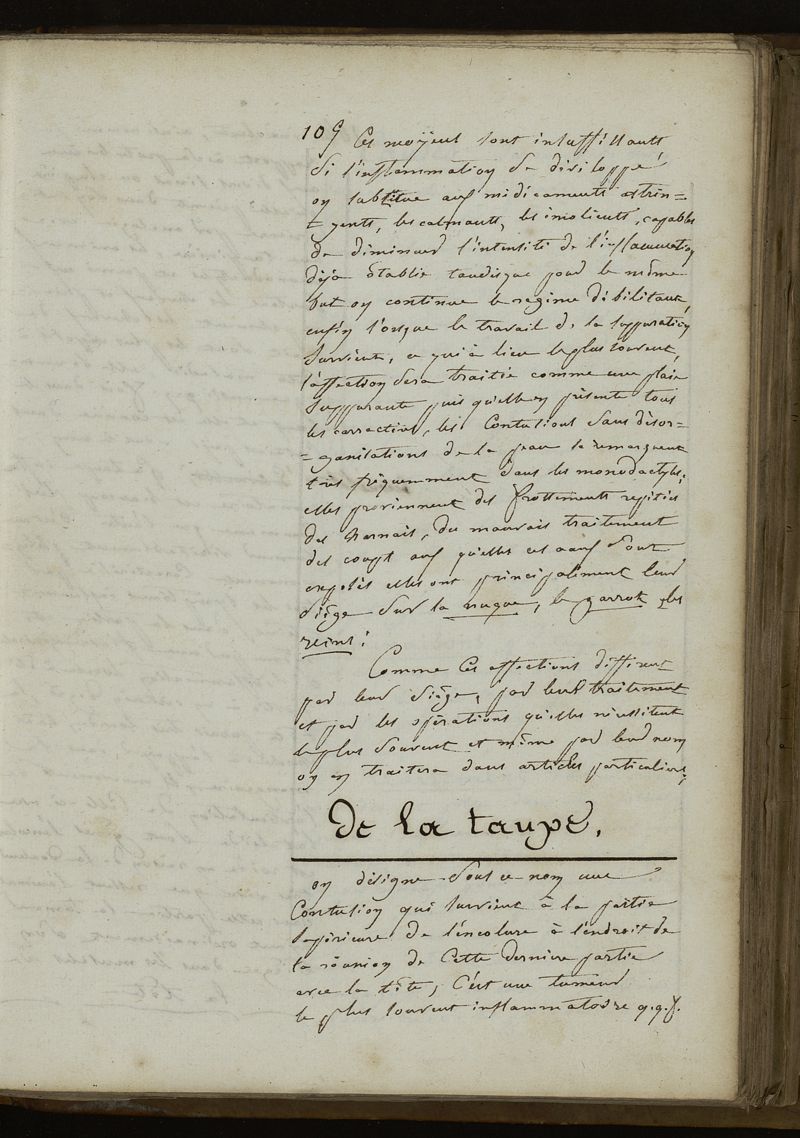 109 Ces moÿens sont insuffisants
si l'inflammation se développe
on substitue aux médicaments astrin=
gents, les calmants, les émolients, capables
de diminuer l'intensité de l'inflammation
déja établie tandisque pour le même
but on continue le régime débilitant,
enfin lorsque le travail de la suppuration
survient, ce qui a lieu le plus souvent,
l'affection sera traitée comme une plaie
suppurante puis qu'elle en présente tous
les carractères, les Contusions sans désor=
=ganisations de la peau se remarquent
très fréquemment dans les monodactyles;
elles proviennent des frottements répétés
des harnais, du mauvais traitement
des coups aux quelles ces sont
exposés elles ont principalement leur
siège sur la nuque, le garrot, les
reins:
Comme ces affections different
par leur siège, par leur traitement
et par les opérations qu'elles nécessitent
le plus souvent et même par leur nom
on en traitera dans articles particuliers;
De la taupe.
on désigne sous ce nom une
Contusion qui survient à la partie
supérieure de l'encolure à l'endroit de
la réunion de Cette derniere partie
avec la tête, C'est une tumeur
le plus souvent inflammatoire q.q.f.